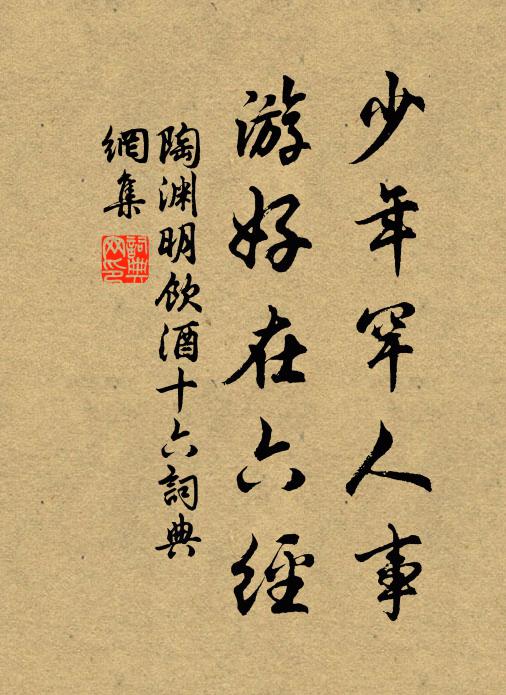 少年罕人事
游好在六經
陶渊明飲酒十六詞典
網集
詞典网印